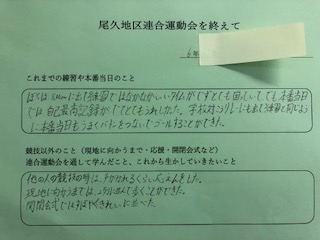 尾久地区連合運動会を終えて
6年
これまでの練習や本番当日のこと
ぼくは に出て練習ではなかなかいいタイムがでずとても困っていても本番当日
では自己最高記録がでてとてもうれしかった。学校対こうリレーにも出て練習と同じよう
に本番当日もうまくバトンをつないでゴールすることができた。
競技以外のこと（現地に向かうまで・応援・開閉会式など）
連合運動会を通して学んだこと、これから生かしていきたいこと
他の人の競技の時は、 かれるくらい をした。
現地に向かうまでは、2列に並んで歩くことができた。
開閉会式では、すばやくきれいに並べた。